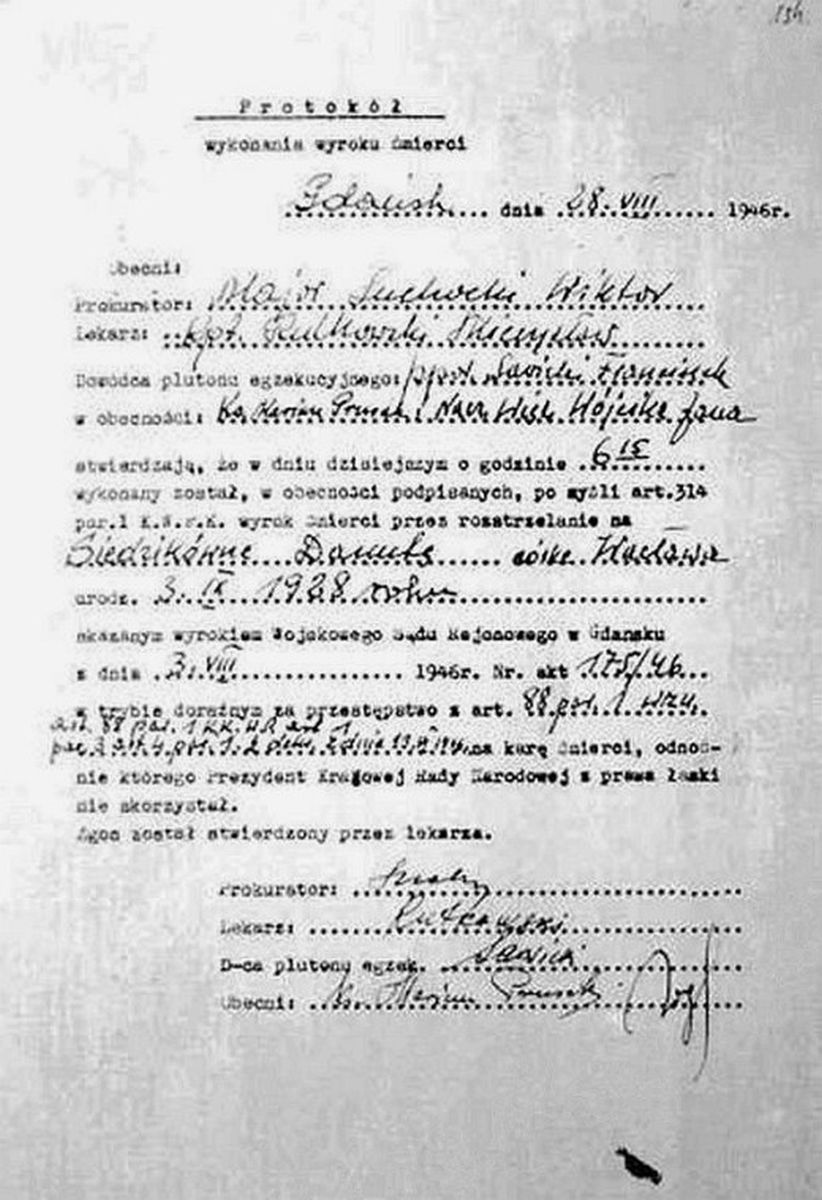 134
Protokół
wykonania wyroku śmierci
Gdańsk dnia 28. VIII 1946r.
Obecni:
Prokurator: Major Suchocki Wiktor
Lekarz: Kpt. Rutkowski Mieczysław
Dowódca plutonu egzekucyjnego: ppor. Sawicki Franciszek
w obecności: Ks. Marian Prusak i Nacz. Więz. Wójcika Jana
stwierdzają, że w dniu dzisiejszym o godzinie 6 15
wykonany został, w obecności podpisanych, po myśli art.314
par.1 K.W.P.K. wyrok śmierci przez rozstrzelanie na
Siedzikównę Danutę córkę Wacława
urodz. 3. IX 1928 roku
skazanym wyrokiem Wojskowego Sądu Rejonowego w Gdańsku
z dnia 3. VIII 1946r. Nr. akt 175/46
w trybie doraźnym za przestępstwo z art. 88 par. 1
art. 88 par. 1 KK. WP. art 1
par. 2 art. 4. par. 1. 2 dekr. z dnia na karę śmierci, odnoś-
nie którego Prezydent Krajowej Rady Narodowej z prawa łaski
nie skorzystał.
Zgon został stwierdzony przez lekarza.
Prokurator:
Lekarz: Rutkowski
D-ca plutonu egzek. Sawicki
Obecni: Ks. Marian Prusak